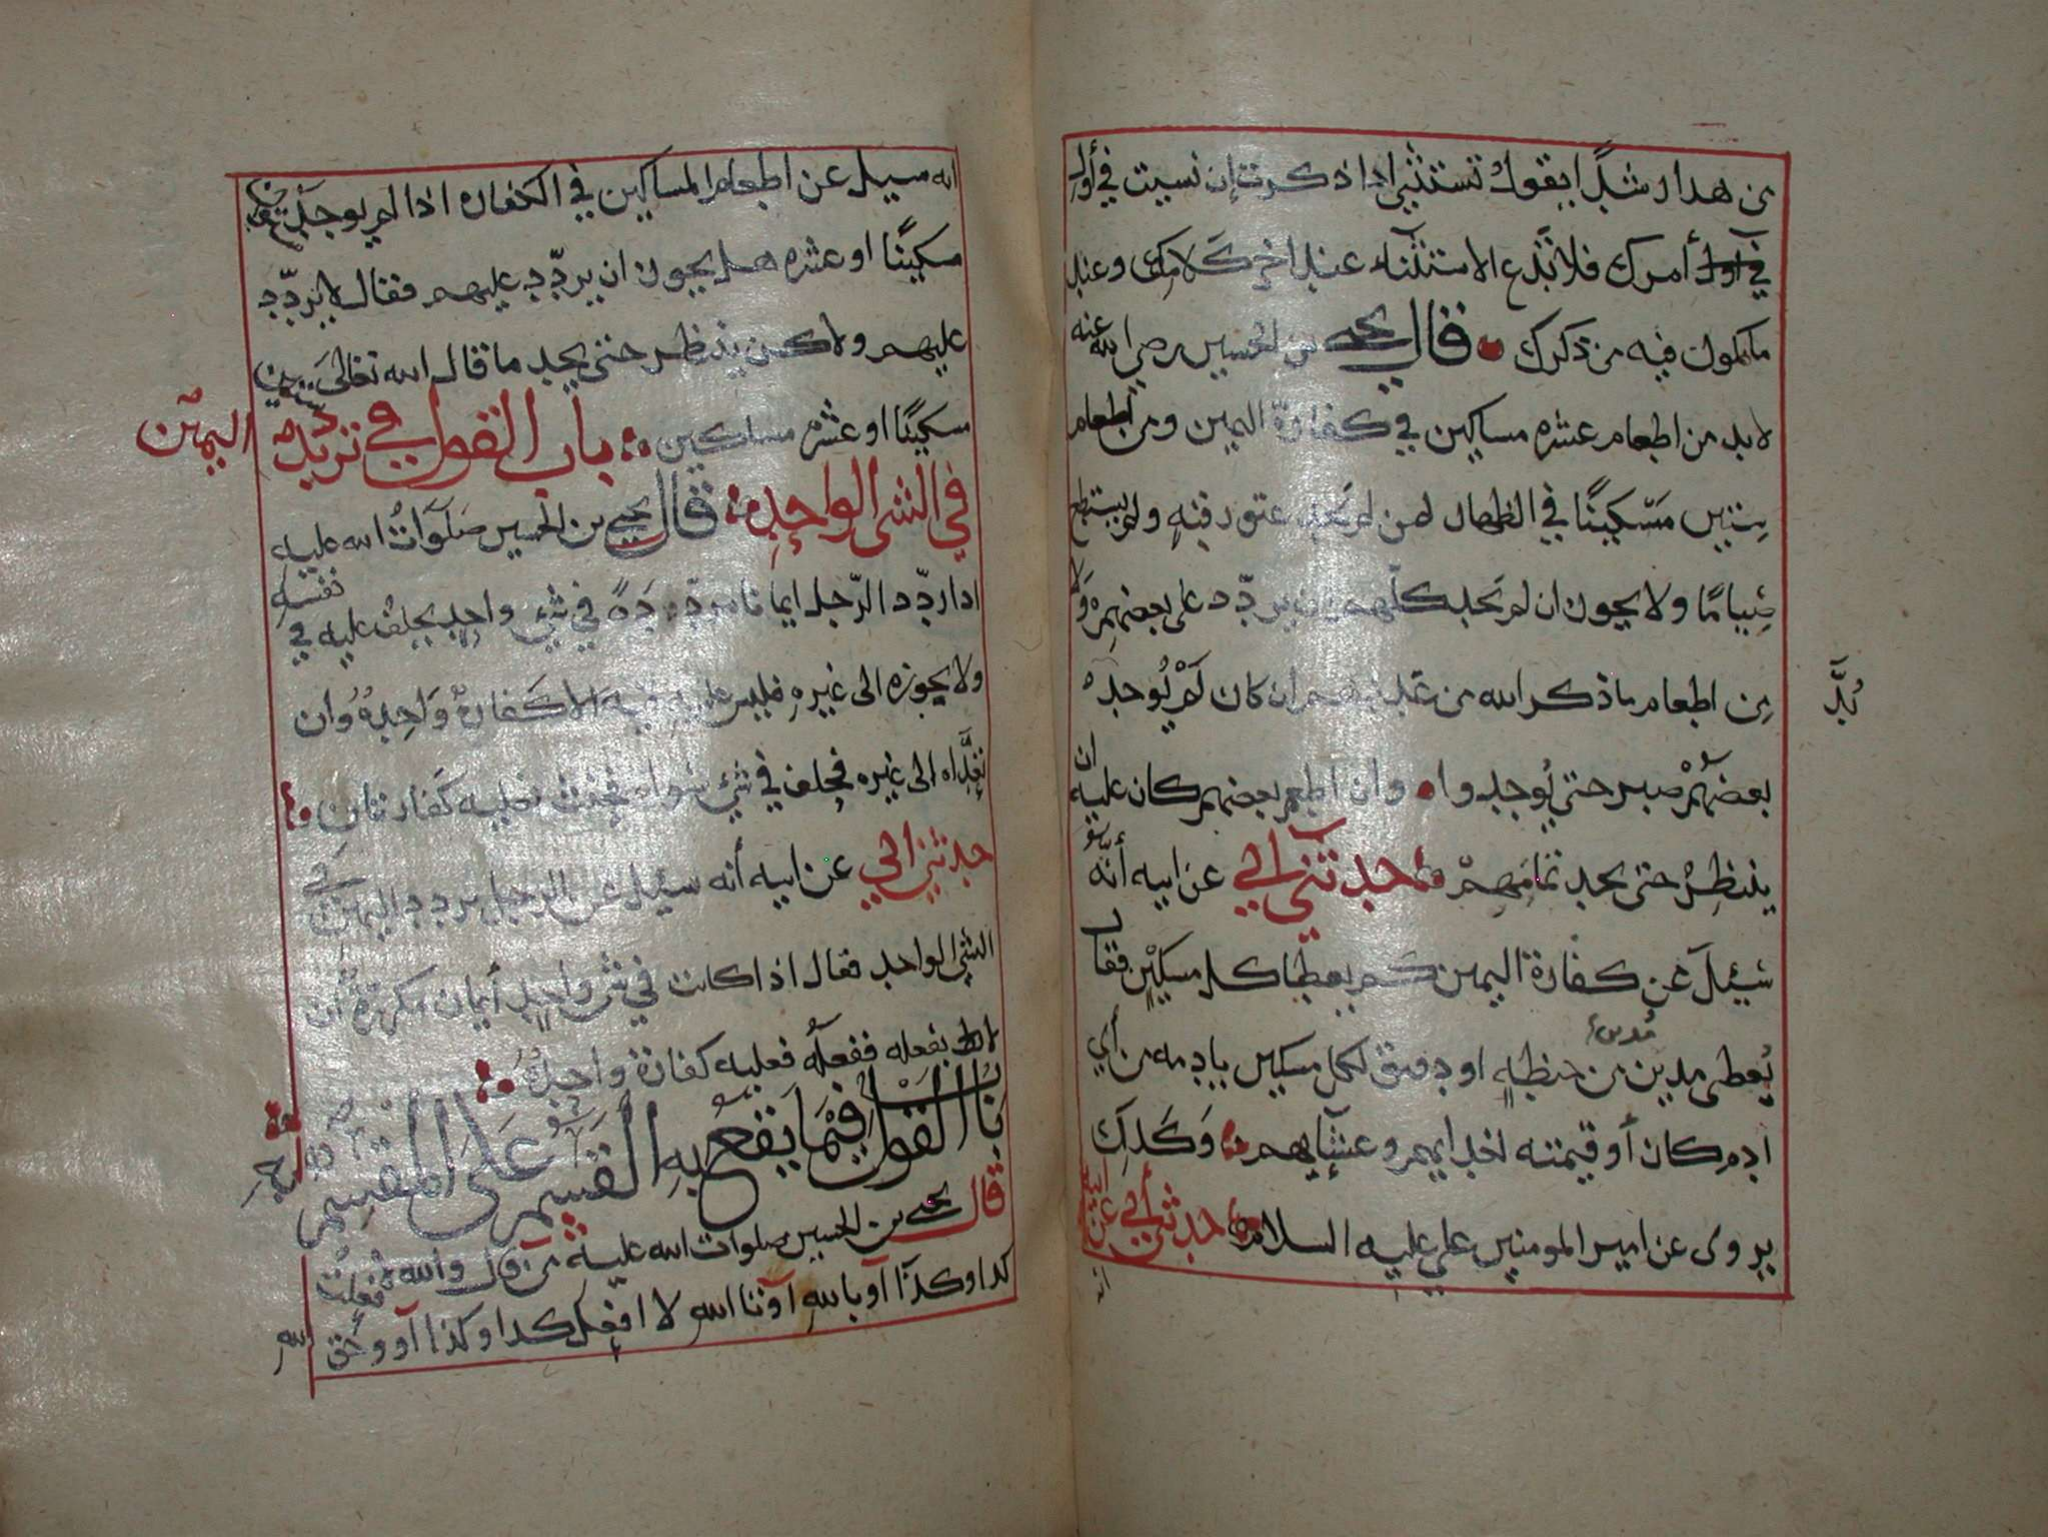 من هدا رشدا يقول تستثني اذا ذكرت إن نسيت في أول
في أول أمرك فلا تدع الاستثناء عند اخر كلامك وعند
ما تكون فيه من ذكرك قال يحيى بن الحسين رضي الله عنه
لا بد من اطعام عشره مساكين في كفارة اليمين ومن اطعام
ستين مسكينًا في الظهار لمن لم يجد عتق رقبه ولم يستطع
صيامًا ولا يجوز ان لم يجد كلهم ان يردّد على بعضهم ولا
بُدَّ
من اطعام ما ذكر الله من عددهم ان كان لمْ يُوجد
بعضهمْ صبر حتى يُوجدوا وان اطعم بعضهم كان عليه ان
ينتظرُ حتى يجد تمامهمْ حدثني ابي عن ابيه أنّه
سُئِلَ عن كفارة اليمين كم يعطا كل مسكين فقال
يُعطى مدين من حنطهٍ او دقيق لكل مسكين بادمه من أي
ادم كان أو قيمته لغدايهم وعشايهم وكذلك
يروى عن امير المومنين علي عليه السلام حدثني أبي عن ابيه
انه
انه سيل عن اطعام المساكين في الكفاره اذا لم يوجد ستين
مسكينًا او عشره هل يجوز ان يردّد عليهم فقال لا يردّد
عليهم ولاكن ينتظر حتى يجد ما قال الله تعالى ستين
مسكينًا او عشره مساكين باب القول في ترديد اليمين
في الشى الواحدِ قال يحيى بن الحسين صلوات الله عليه
اذا ردّد الرّجل ايمانا مردّدةً في شيٍ واحدٍ يحلف عليه في نفسه
ولا يجوزه الى غيرهِ فليس عليه فيه الا كفارةٌ واحدهٌ وان
تعدّاه الى غيره فحلف في شيٍ سواه فحنث فعليه كفارتان
حدثني ابي عن ابيه أنه سئيل عن الرجل يردد اليمين في
الشي الواحد فقال اذا كانت في شي واحدٍ أيمان مكررةٌ أن
لا يفعله ففعله فعليه كفارة واحدةٌ
بابُ القول فيما يقع به القسم على المقسم
قال يحيى بن الحسين صلوات الله عليه من قال والله لا فعلت
كدا وكذا أو باللهِ أو تا اللهِ لا افعل كدا وكذا أو وحق
الله